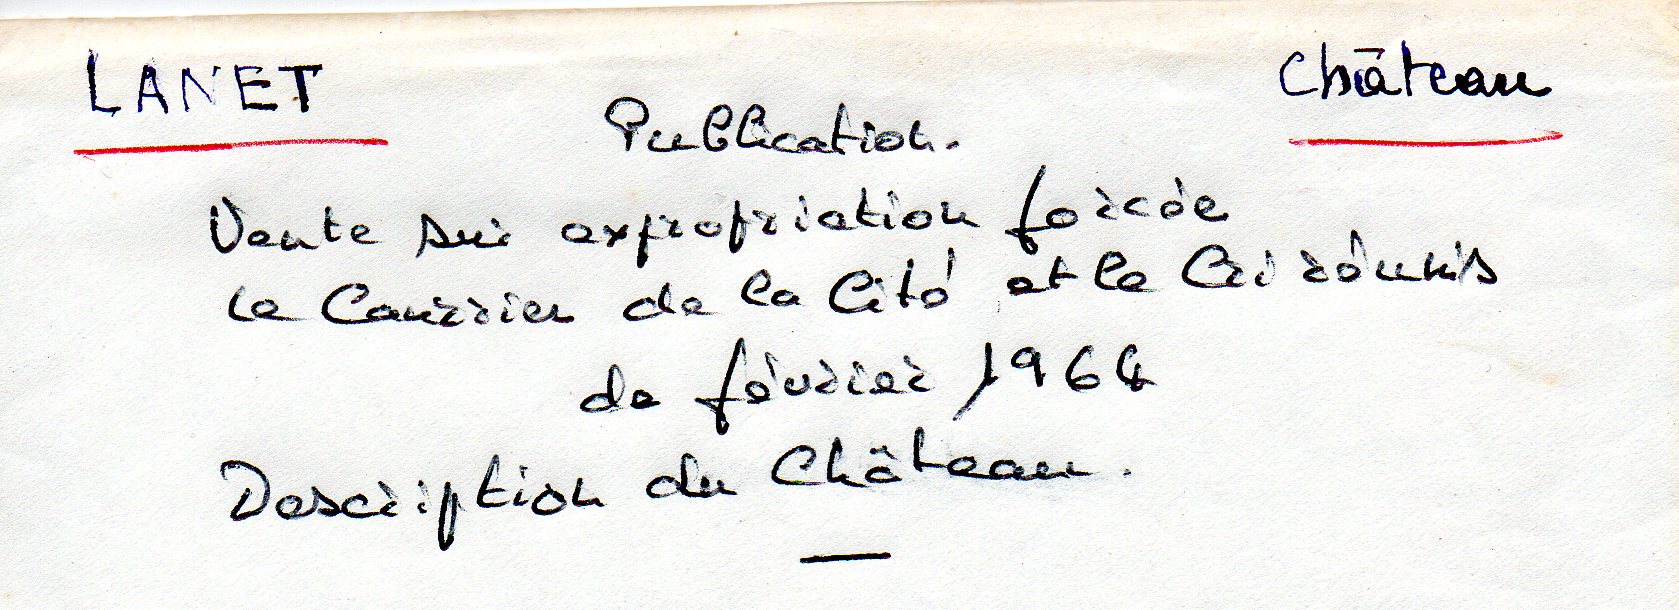 LANET Château
Publication.
Vente sur expropriation forcée
le Courrier de la Cité et le Cri réunis
de février 1964
Description du Château.